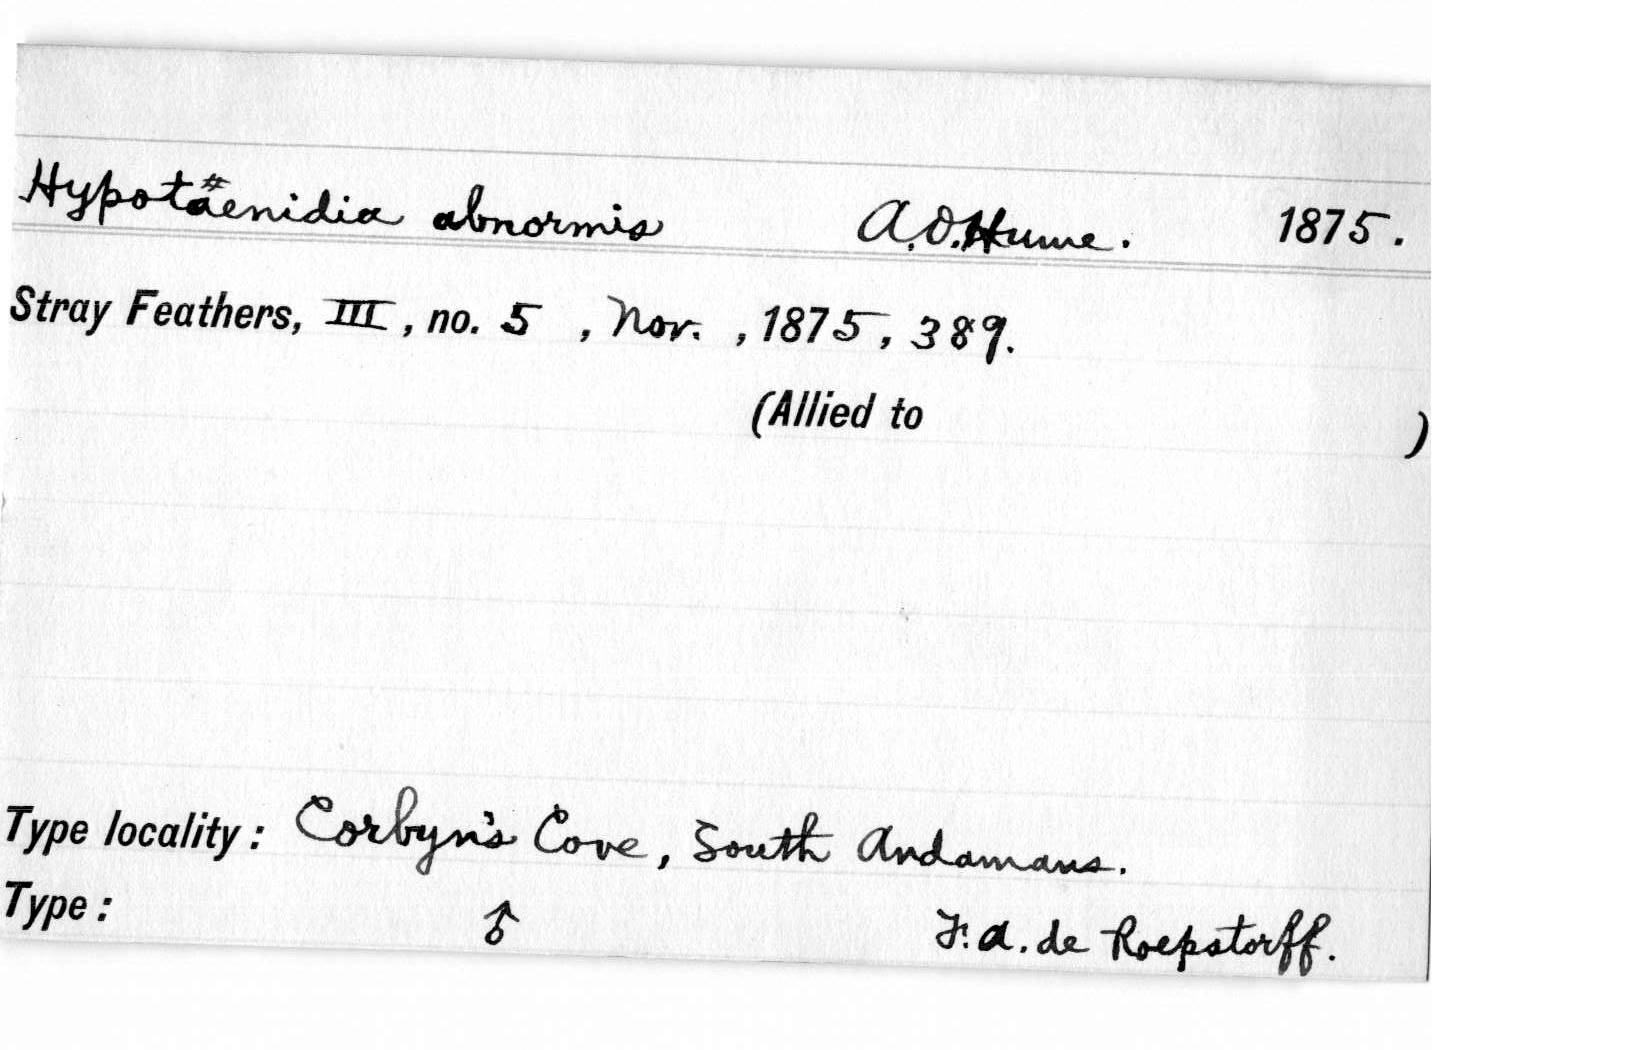 Hypotaenidia abnormis A.O.Hume. 1875.
Stray Feathers, III, no. 5, Nov., 1875, 389.
(Allied to )
Type locality: Corbyn's Cove, South Andamans.
Type: ♂ F.A. de Roepstorff.